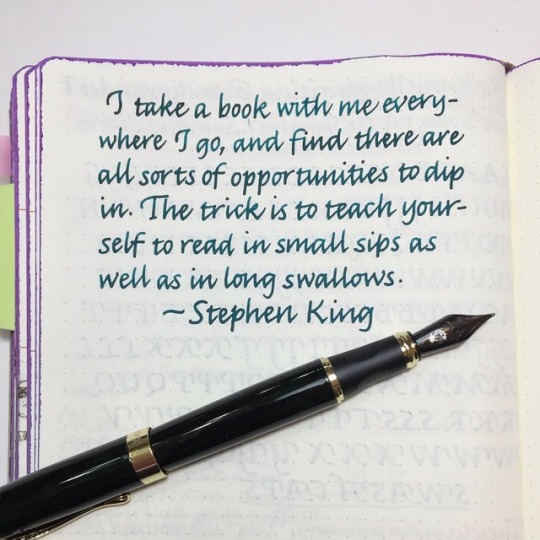 I take a book with me every-
where I go, and find there are
all sorts of opportunities to dip
in. The trick is to teach your-
self to read in small sips as
well as in long swallows.
~Stephen King